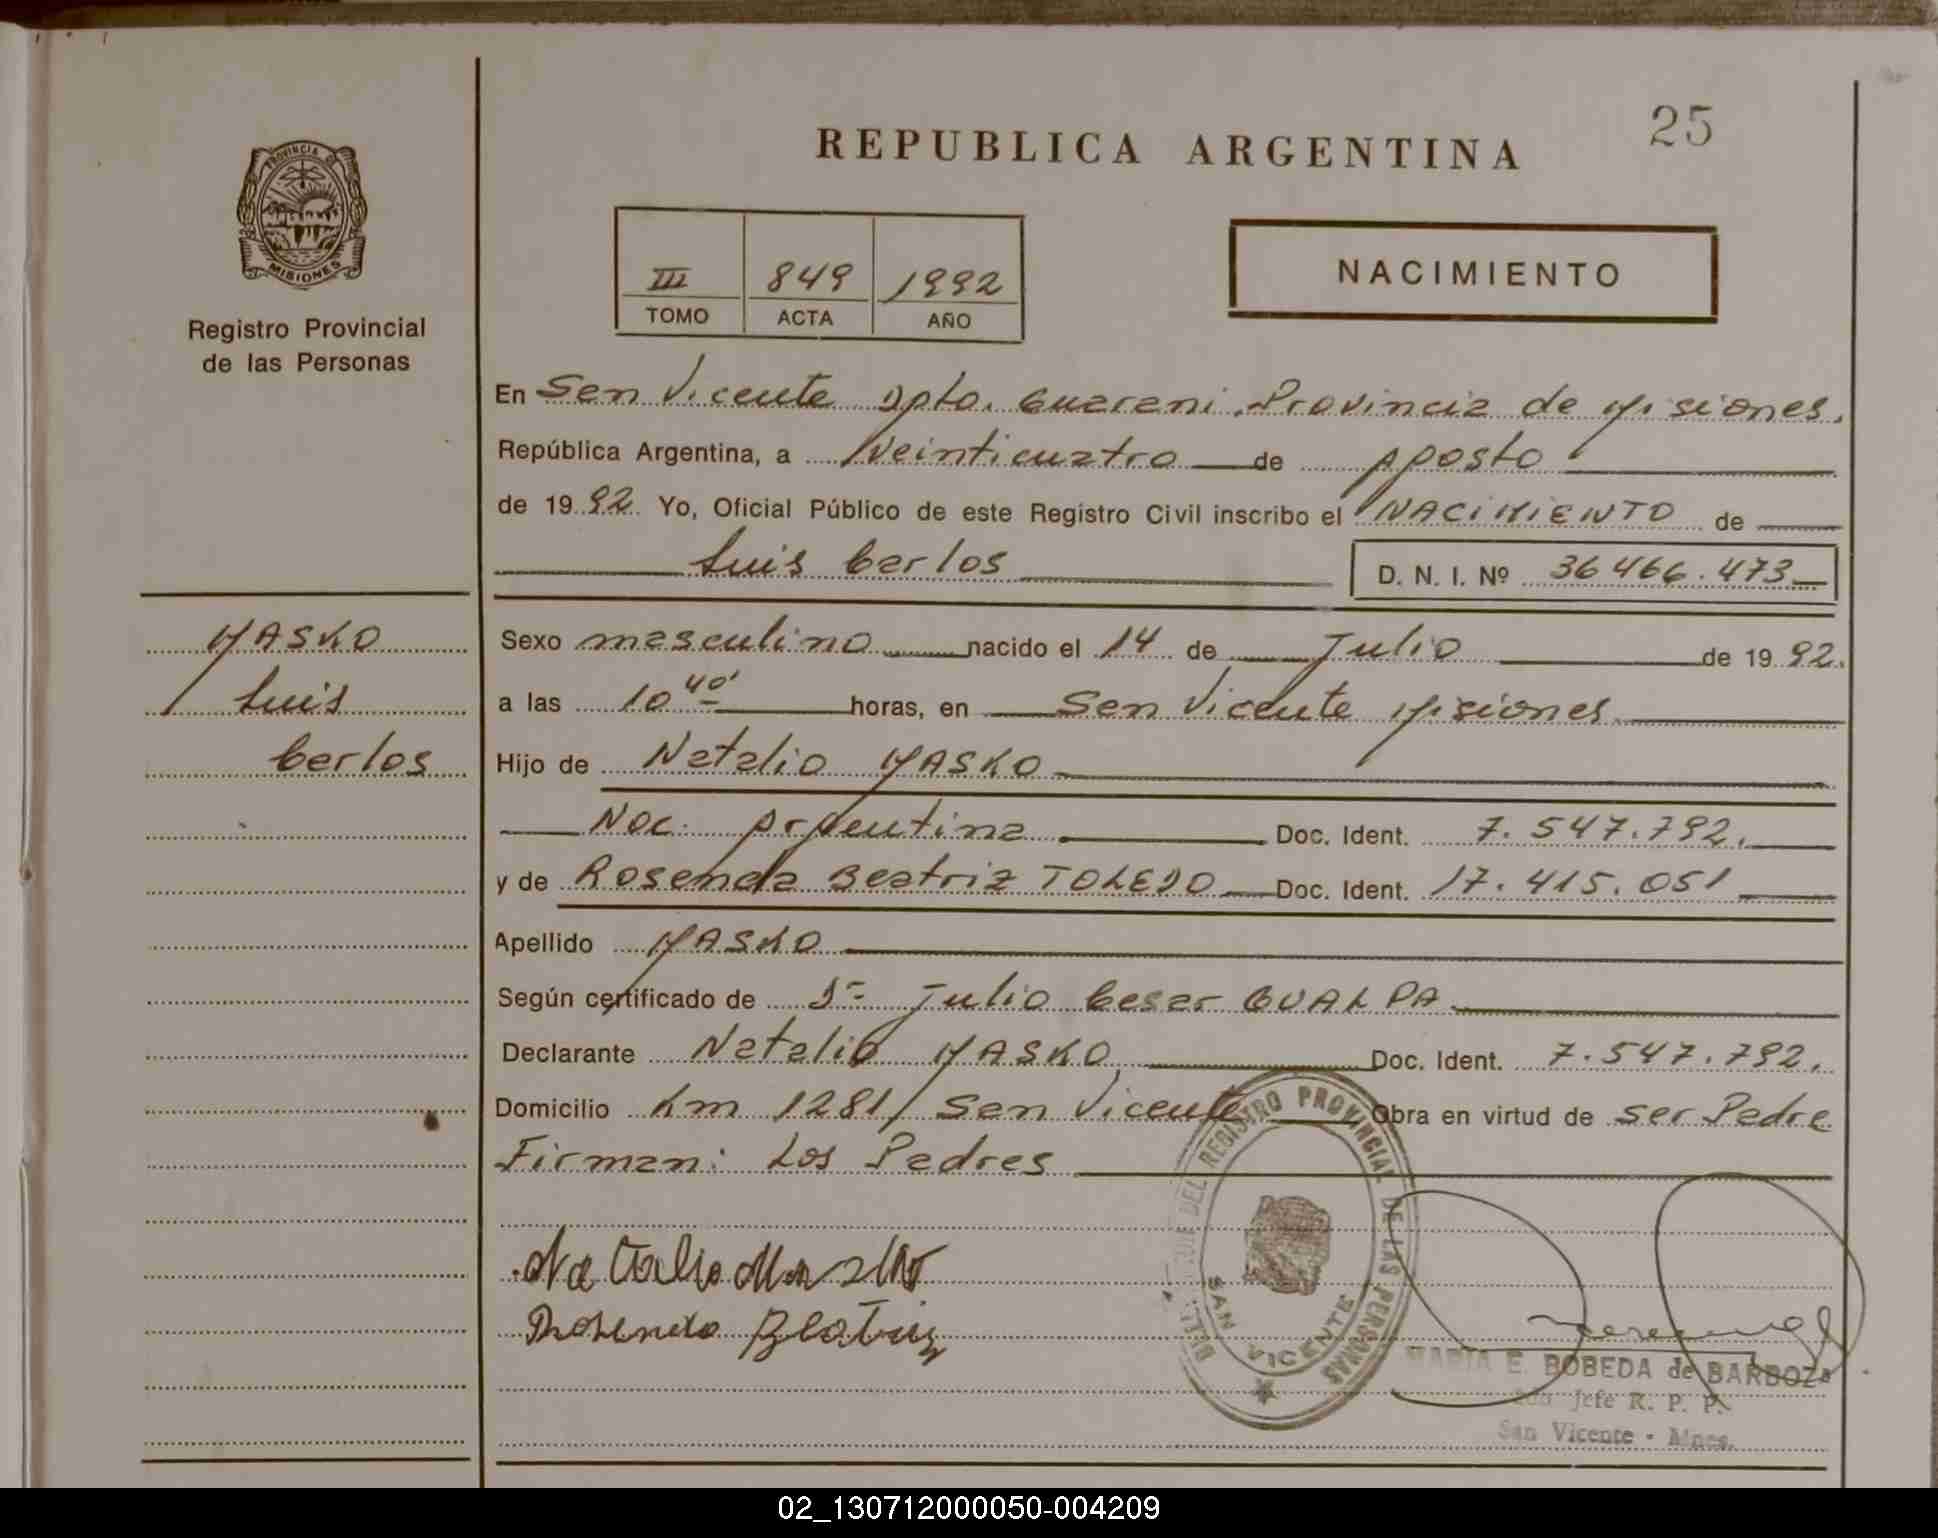 25
REPUBLICA ARGENTINA
PROVINCIA DE
MISIONES
Registro Provincial
de las Personas
III 849 1992
TOMO ACTA AÑO
NACIMIENTO
En San Vicente Dpto. Guarani. Provincia de Misiones.
República Argentina, a Veinticuatro de Agosto
de 1992. Yo, Oficial Público de este Registro Civil inscribo el NACIMIENTO de
Luis Carlos D. N. I. Nº 36466.473
MASKO
Luis
Carlos
Sexo masculino nacido el 14 de Julio de 1992.
a las 10 40' horas, en San Vicente Misiones
Hijo de Natalio MASKO
Nac. Argentina Doc. Ident. 7.547.792.
y de Rosenda Beatriz TOLEDO Doc. Ident. 17.415.051
Apellido MASKO
Según certificado de Dr Julio Cesar GUALPA
Declarante Natalio MASKO Doc. Ident. 7.547.792.
Domicilio Km 1281/ San Vicente Obra en virtud de ser Padre
Firman: Los Padres
Natalio Masko
Rosenda Beatriz
DEL REGISTRO PROVINCIAL DE LAS PERSONAS
SAN VICENTE
MARIA E. BOBEDA de BARBOZA
Jefe R. P. P.
San Vicente - Mnes.
02_130712000050-004209